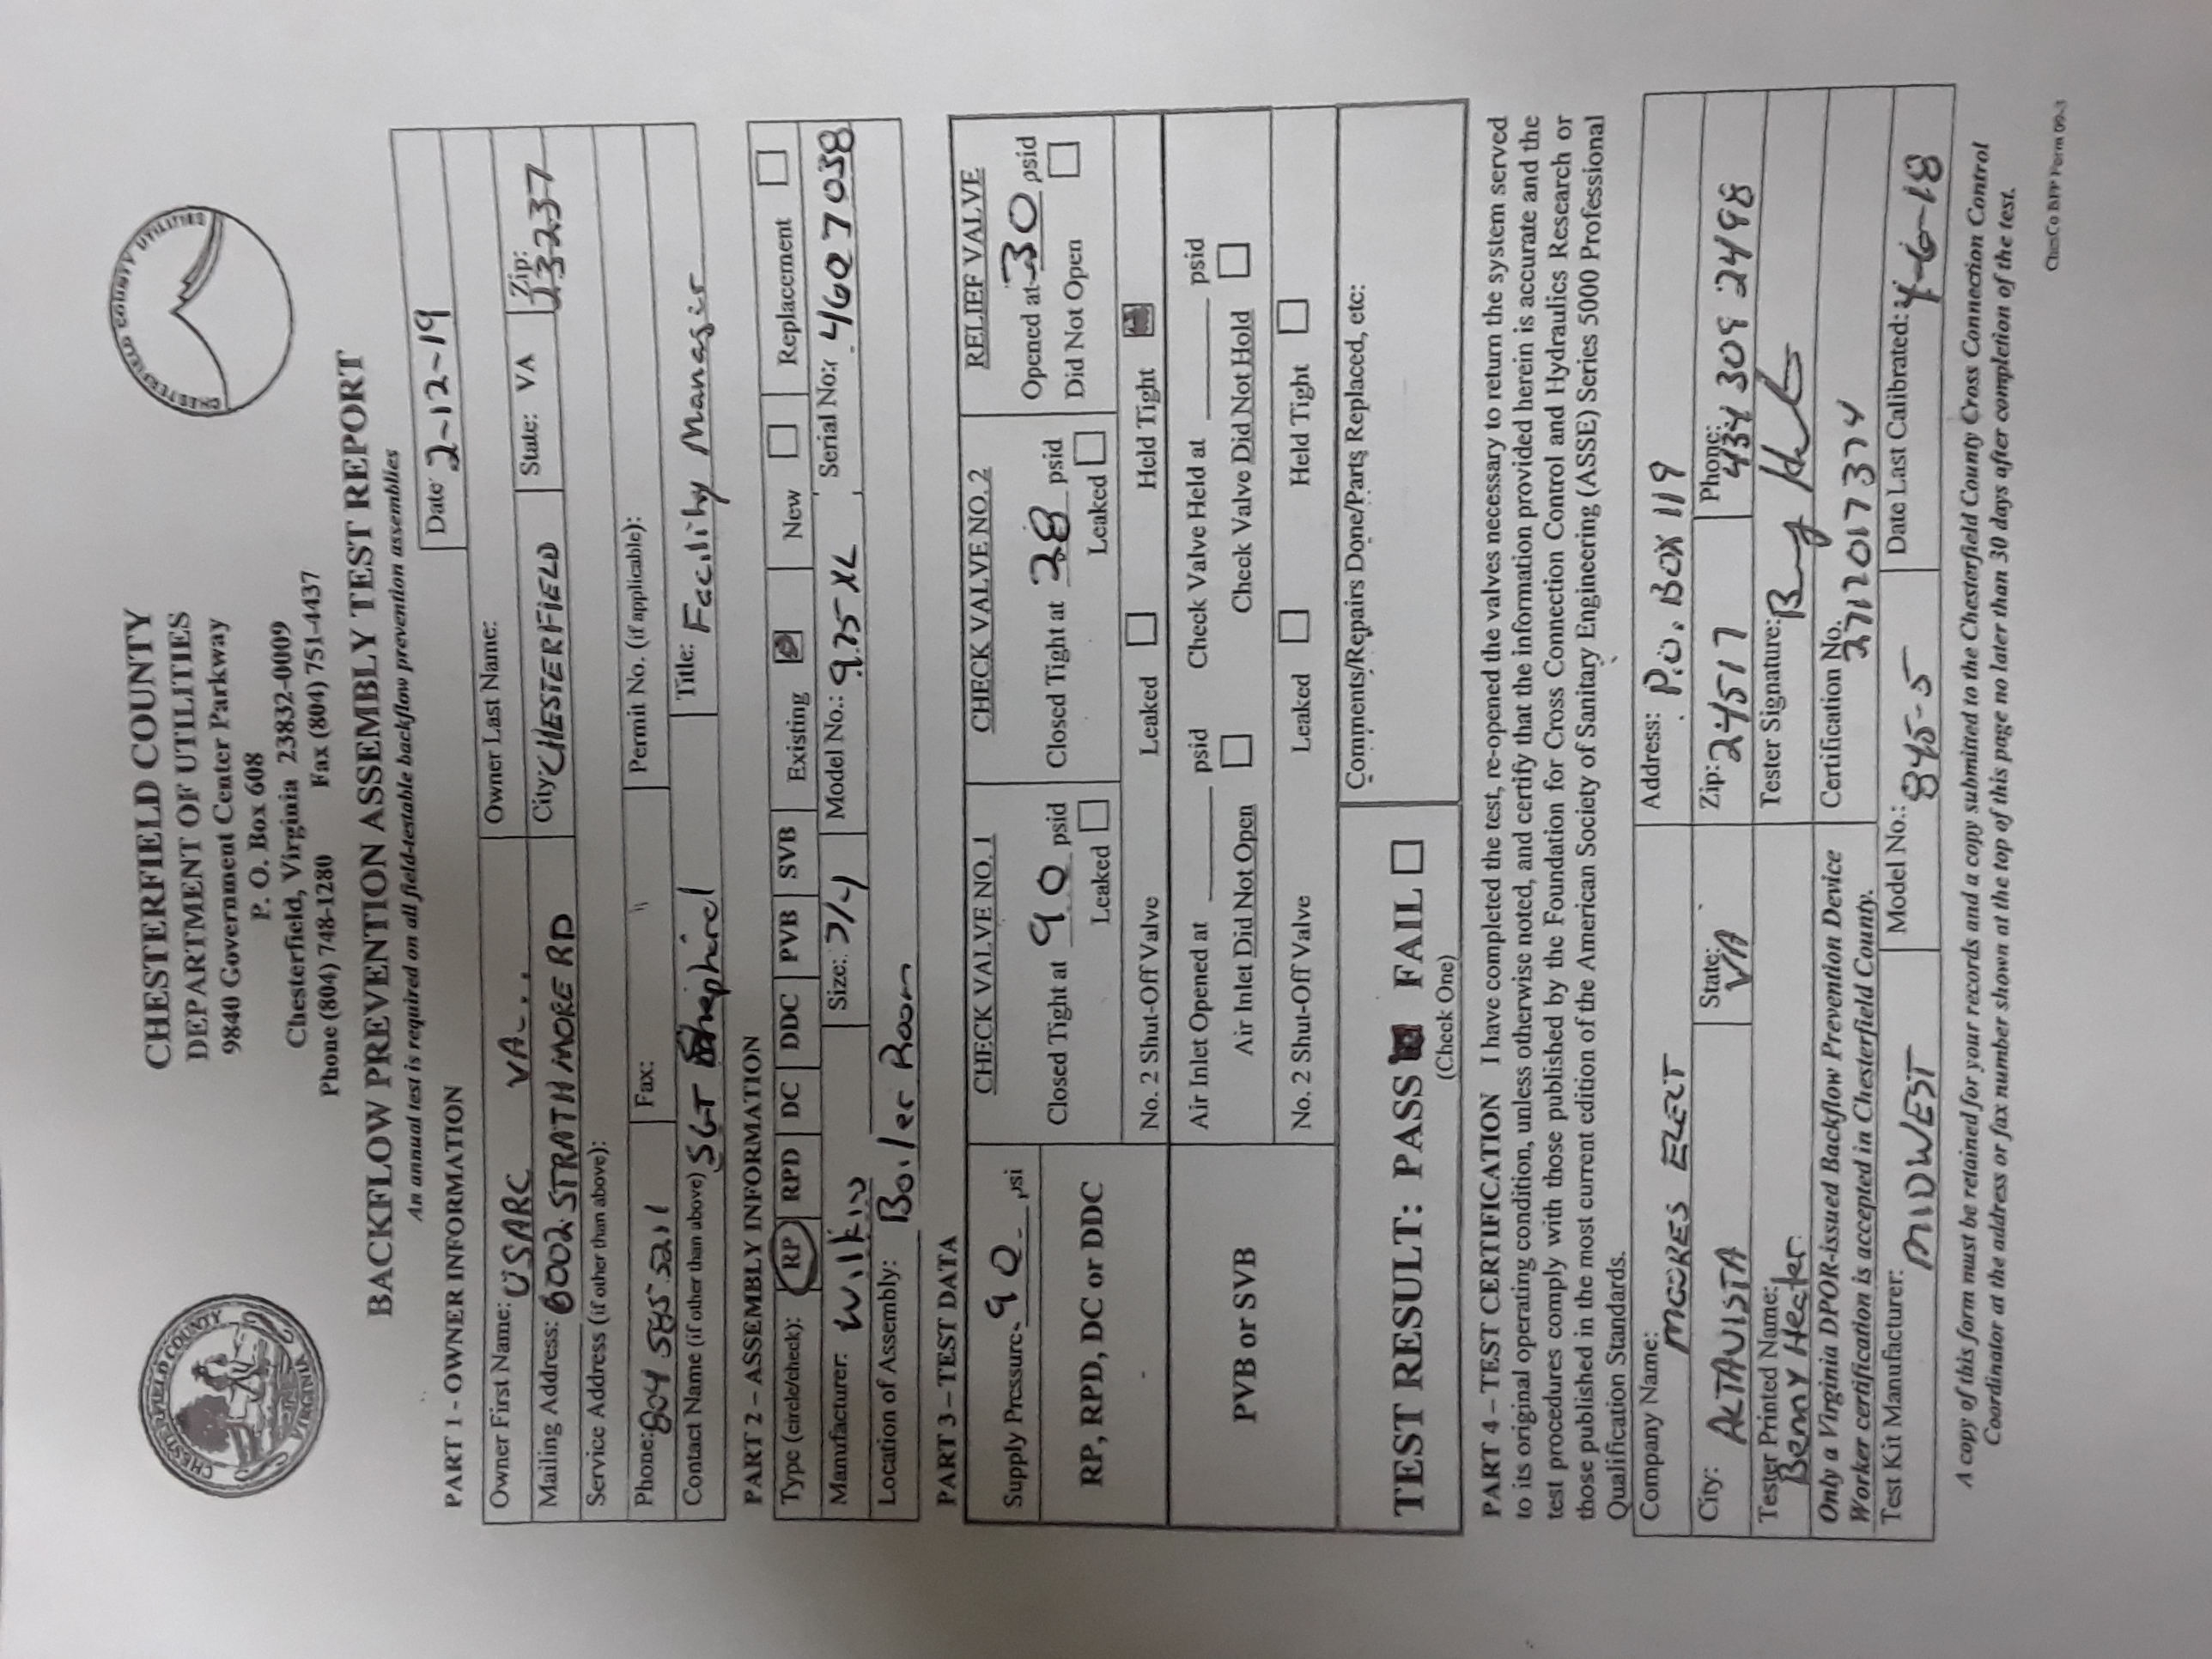 CHESTERFIELD COUNTY VIRGINIA
CHESTERFIELD COUNTY UTILITIES
CHESTERFIELD COUNTY
DEPARTMENT OF UTILITIES
9840 Government Center Parkway
P. O. Box 608
Chesterfield, Virginia 23832-0009
Phone (804) 748-1280 Fax (804) 751-4437
BACKFLOW PREVENTION ASSEMBLY TEST REPORT
An annual test is required on all field-testable backflow prevention assemblies
Date 2-12-19
PART 1 - OWNER INFORMATION
Owner First Name: USARC VA... Owner Last Name:
Mailing Address: 6002 STRATHMORE RD City: CHESTERFIELD State: VA Zip: 23237
Service Address (if other than above):
Phone: 804 585 5211 Fax: Permit No. (if applicable):
Contact Name (if other than above) SGT Title: Facility Manager
PART 2 – ASSEMBLY INFORMATION
Type (circle/check): RP RPD DC DDC PVB SVB Existing New Replacement
Manufacturer: Wilkin Size: 3/4 Model No.: 975 XL Serial No.: 4607038
Location of Assembly: Boiler Room
PART 3 – TEST DATA
Supply Pressure 90 psi CHECK VALVE NO. 1 CHECK VALVE NO. 2 RELIEF VALVE
RP, RPD, DC or DDC Closed Tight at 90 psid Closed Tight at 28 psid Opened at 30 psid
Leaked Leaked Did Not Open
No. 2 Shut-Off Valve Leaked Held Tight
PVB or SVB Air Inlet Opened at psid Check Valve Held at psid
Air Inlet Did Not Open Check Valve Did Not Hold
No. 2 Shut-Off Valve Leaked Held Tight
TEST RESULT: PASS FAIL
(Check One)
Comments/Repairs Done/Parts Replaced, etc:
PART 4 – TEST CERTIFICATION I have completed the test, re-opened the valves necessary to return the system served
to its original operating condition, unless otherwise noted, and certify that the information provided herein is accurate and the
test procedures comply with those published by the Foundation for Cross Connection Control and Hydraulics Research or
those published in the most current edition of the American Society of Sanitary Engineering (ASSE) Series 5000 Professional
Qualification Standards.
Company Name: MOORES ELECT Address: P.O. BOX 119
City: ALTAVISTA State: VA Zip: 24517 Phone: 434 309 2498
Tester Printed Name: Benny Hester Tester Signature:
Only a Virginia DPOR-issued Backflow Prevention Device
Worker certification is accepted in Chesterfield County.
Certification No. 2717017374
Test Kit Manufacturer: MIDWEST Model No.: 845-5 Date Last Calibrated: 4-6-18
A copy of this form must be retained for your records and a copy submitted to the Chesterfield County Cross Connection Control
Coordinator at the address or fax number shown at the top of this page no later than 30 days after completion of the test.
ChesCo BFP Form 09-3